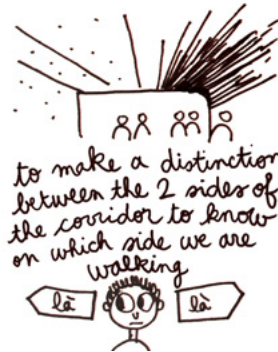 to make a distinction
between the 2 sides of
the corridor to know
on which side we are
walking
là
là